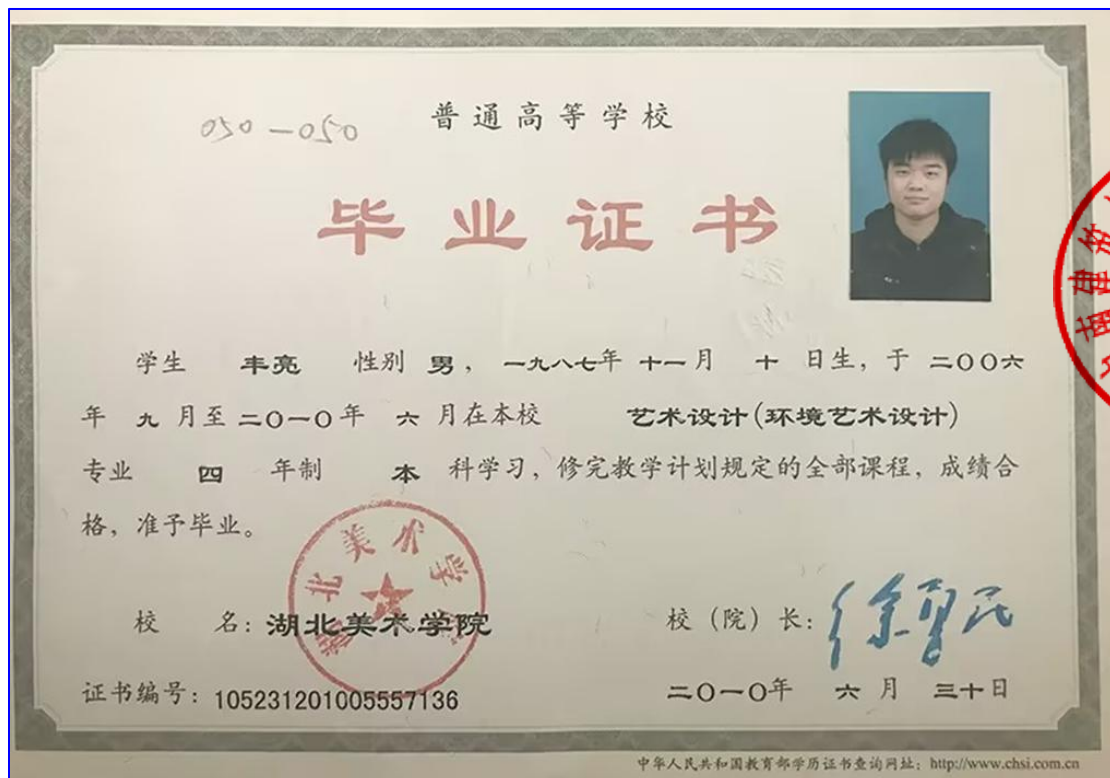 050-050
普通高等学校
毕业证书
学生 丰亮 性别 男，一九八七年 十一月 十 日生，于 二〇〇六
年 九 月至二〇一〇年 六 月在本校 艺术设计(环境艺术设计)
专业 四 年制 本 科学习，修完教学计划规定的全部课程，成绩合
格，准予毕业。
湖北美术学院
校 名：湖北美术学院 校（院）长：徐勇民
证书编号：105231201005557136 二〇一〇年 六 月 三十日
中华人民共和国教育部学历证书查询网址：http://www.chsi.com.cn